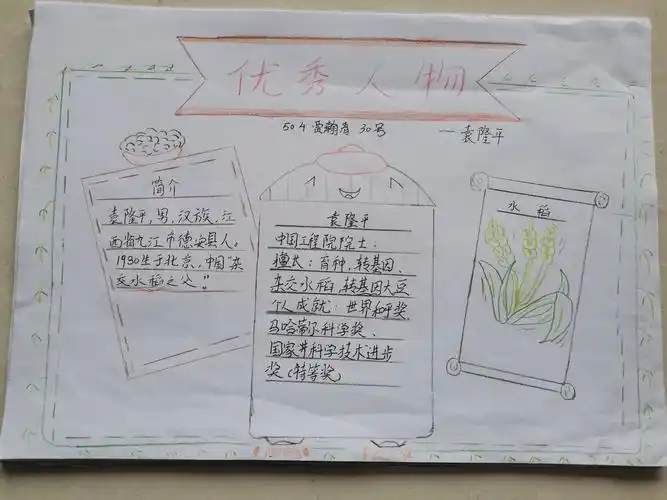 优秀人物
504 30号
—袁隆平
简介
袁隆平,男,汉族,江
西省九江市德安县人,
1930生于北京,中国“杂
交水稻之父”。
袁隆平
中国工程院院士:
擅长:育种,转基因、
杂交水稻,转基因大豆
个人成就:世界和平奖、
马哈蒂尔科学奖、
国家井科学技术进步
奖(特等奖)
水稻